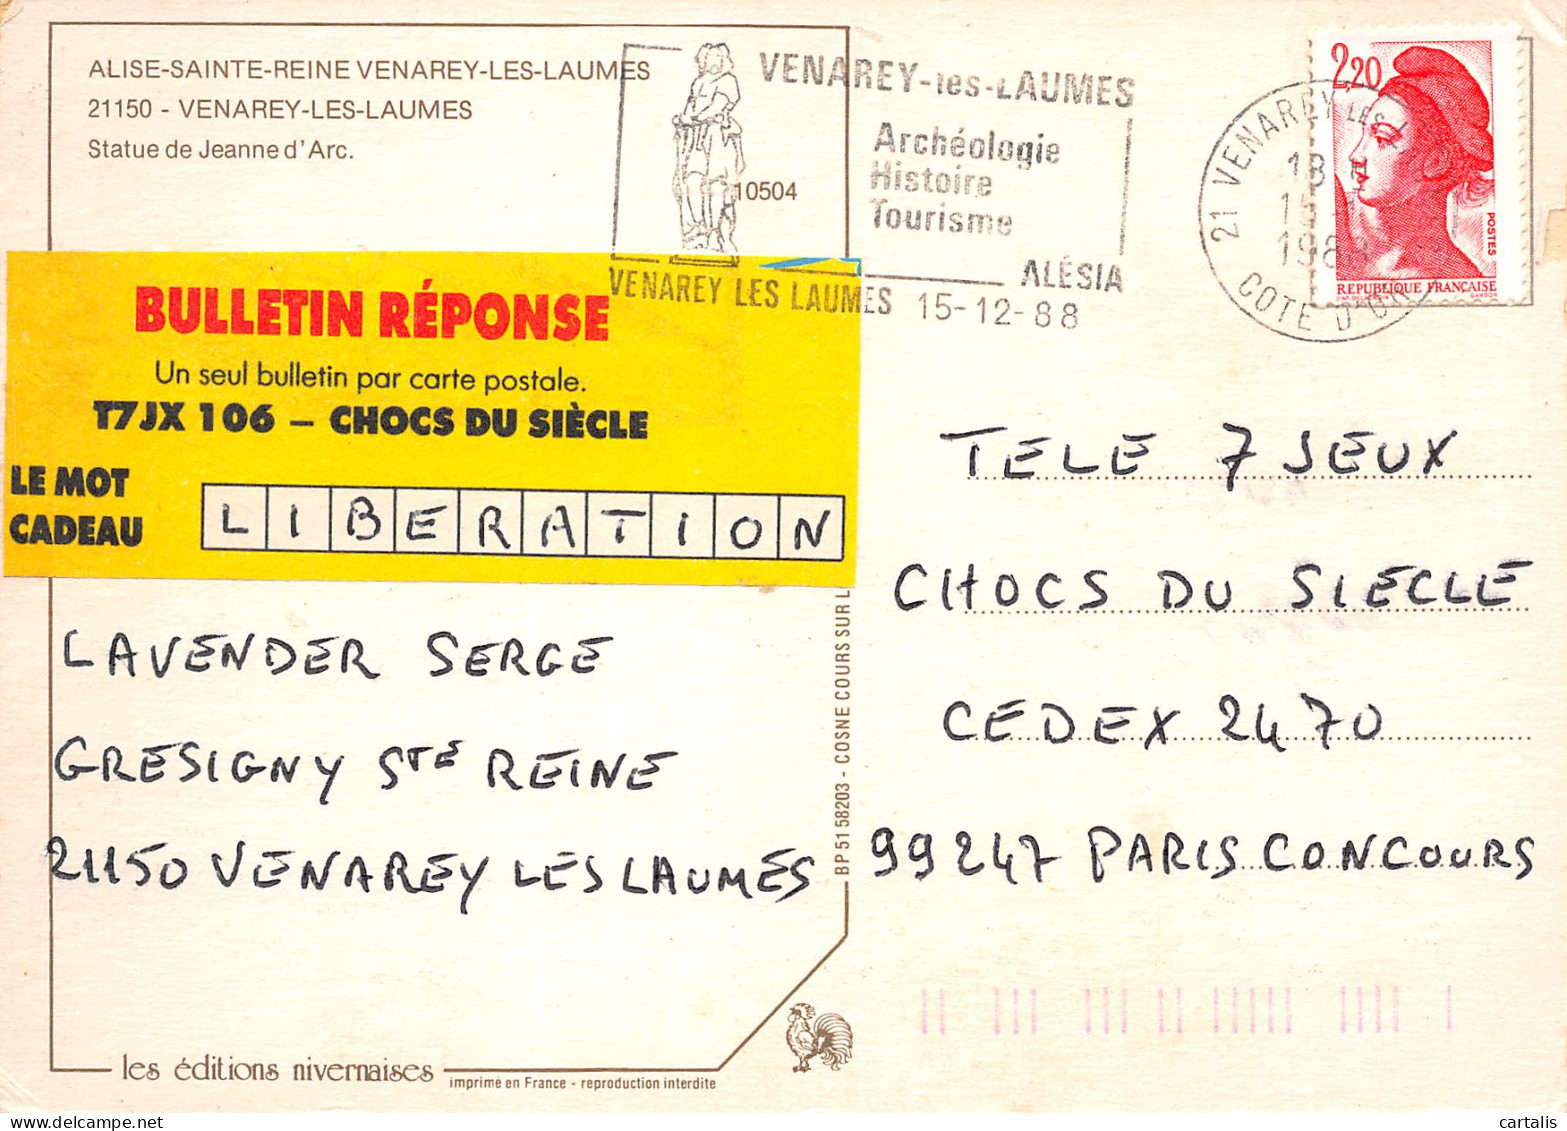 ALISE-SAINTE-REINE VENAREY-LES-LAUMES
21150 - VENAREY-LES-LAUMES
Statue de Jeanne d'Arc.
10504
VENAREY-les-LAUMES
Archéologie
Histoire
Tourisme
ALÉSIA
VENAREY LES LAUMES 15-12-88
21 VENAREY LES
18 H
15
1988
COTE D'OR
2,20
POSTES
REPUBLIQUE FRANÇAISE
D'AP. DELACROIX GANDON
BULLETIN RÉPONSE
Un seul bulletin par carte postale.
T7JX 106 – CHOCS DU SIÈCLE
LE MOT
CADEAU
LIBERATION
LAVENDER SERGE
GRESIGNY STE REINE
21150 VENAREY LES LAUMES
TELE 7 JEUX
CHOCS DU SIECLE
CEDEX 2470
99247 PARIS CONCOURS
BP 51 58203 - COSNE COURS SUR L
les éditions nivernaises
imprimé en France - reproduction interdite
cartalis